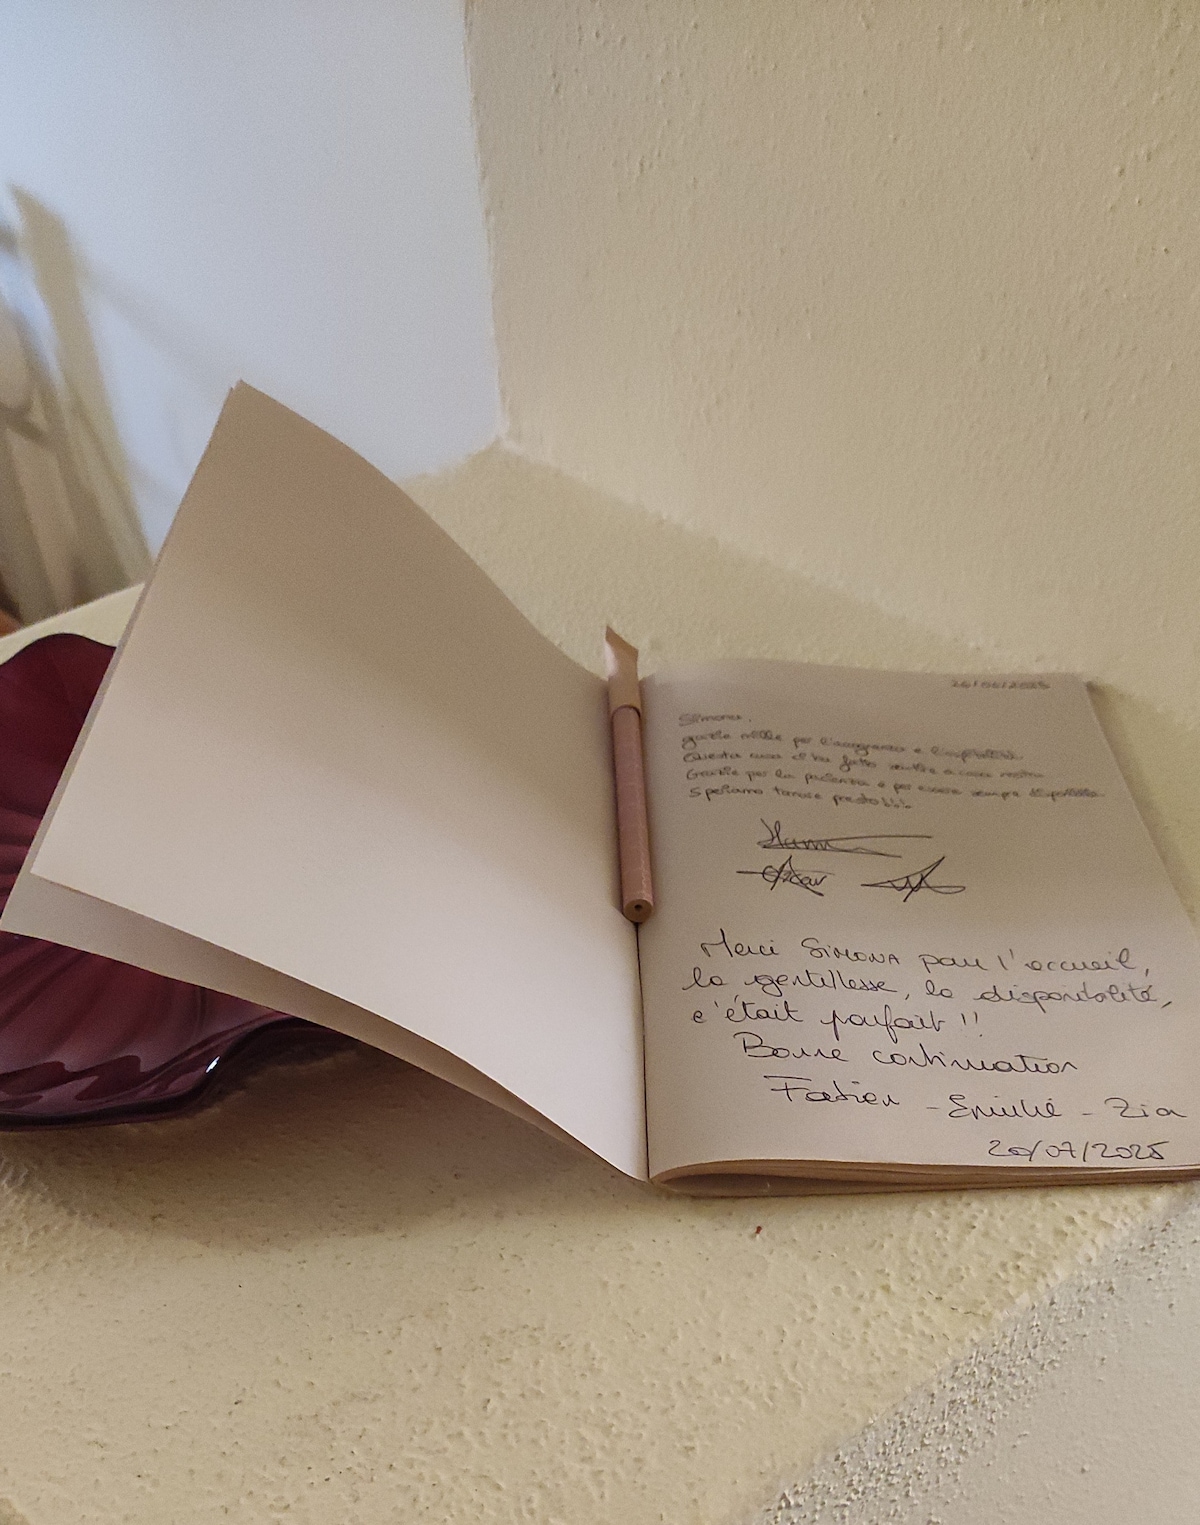 Simona,
grazie mille per l'accoglienza e l'ospitalità.
Questa casa ci ha fatto sentire a casa nostra
Grazie per la pazienza e per essere sempre disponibile
Speriamo tornare presto!!!
Oscar
Merci SIMONA pour l'accueil,
la gentillesse, la disponibilité,
c'était parfait !!
Bonne continuation
Fabien - Emilie - Zia
20/07/2025